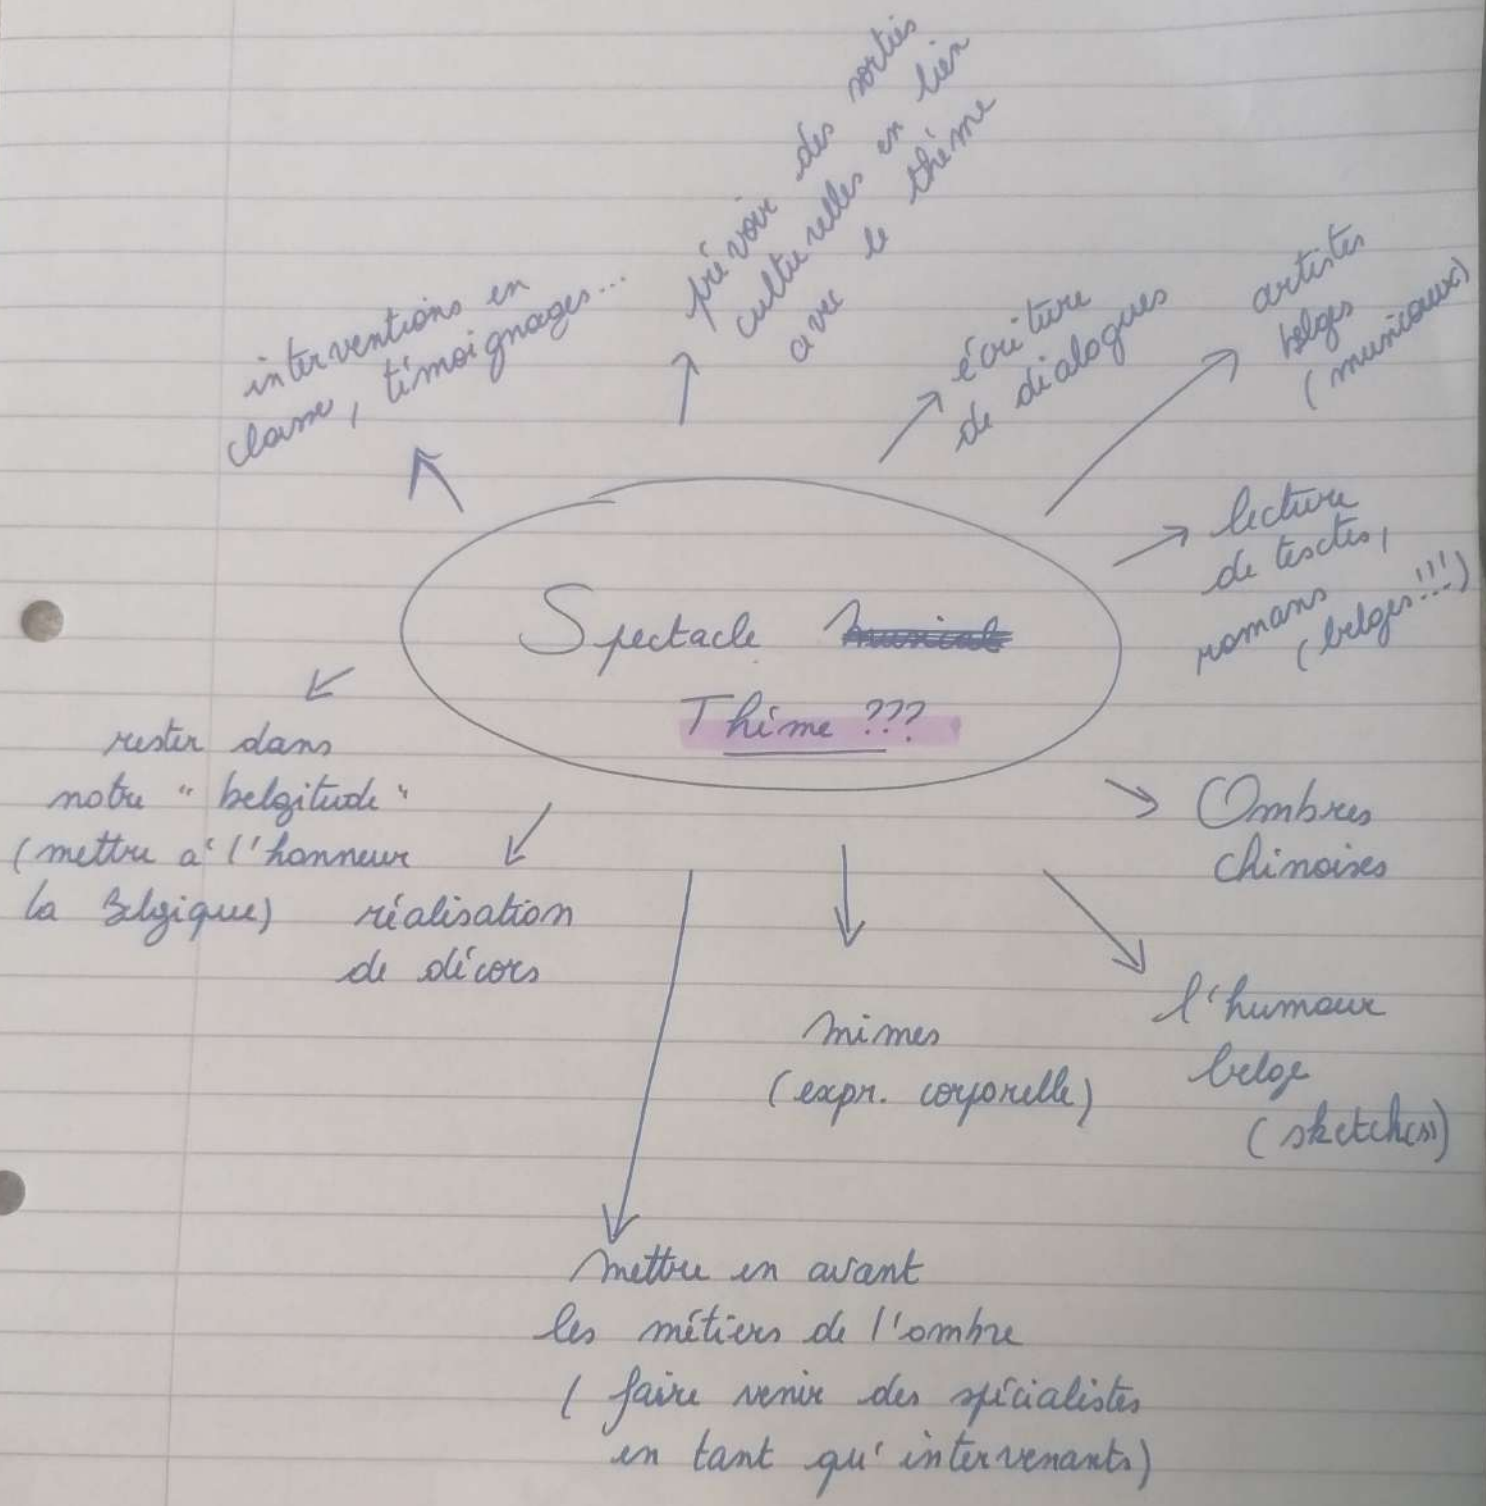 prévoir des sorties
culturelles en lien
avec le thème
interventions en
classe, témoignages...
écriture
de dialogues
artistes
belges
(musicaux)
lecture
de textes,
romans
(belges!!!)
Spectacle musical
Thème ???
rester dans
notre "belgitude"
(mettre à l'honneur
la Belgique)
réalisation
de décors
Ombres
chinoises
mimes
(expr. corporelle)
l'humour
belge
(sketches)
mettre en avant
les métiers de l'ombre
(faire venir des spécialistes
en tant qu'intervenants)